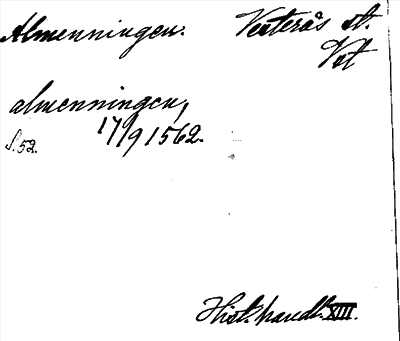 Almenningen. Vesterås st.
Vst
almenningen,
17/9 1562.
s. 52.
Hist. handl. XIII.